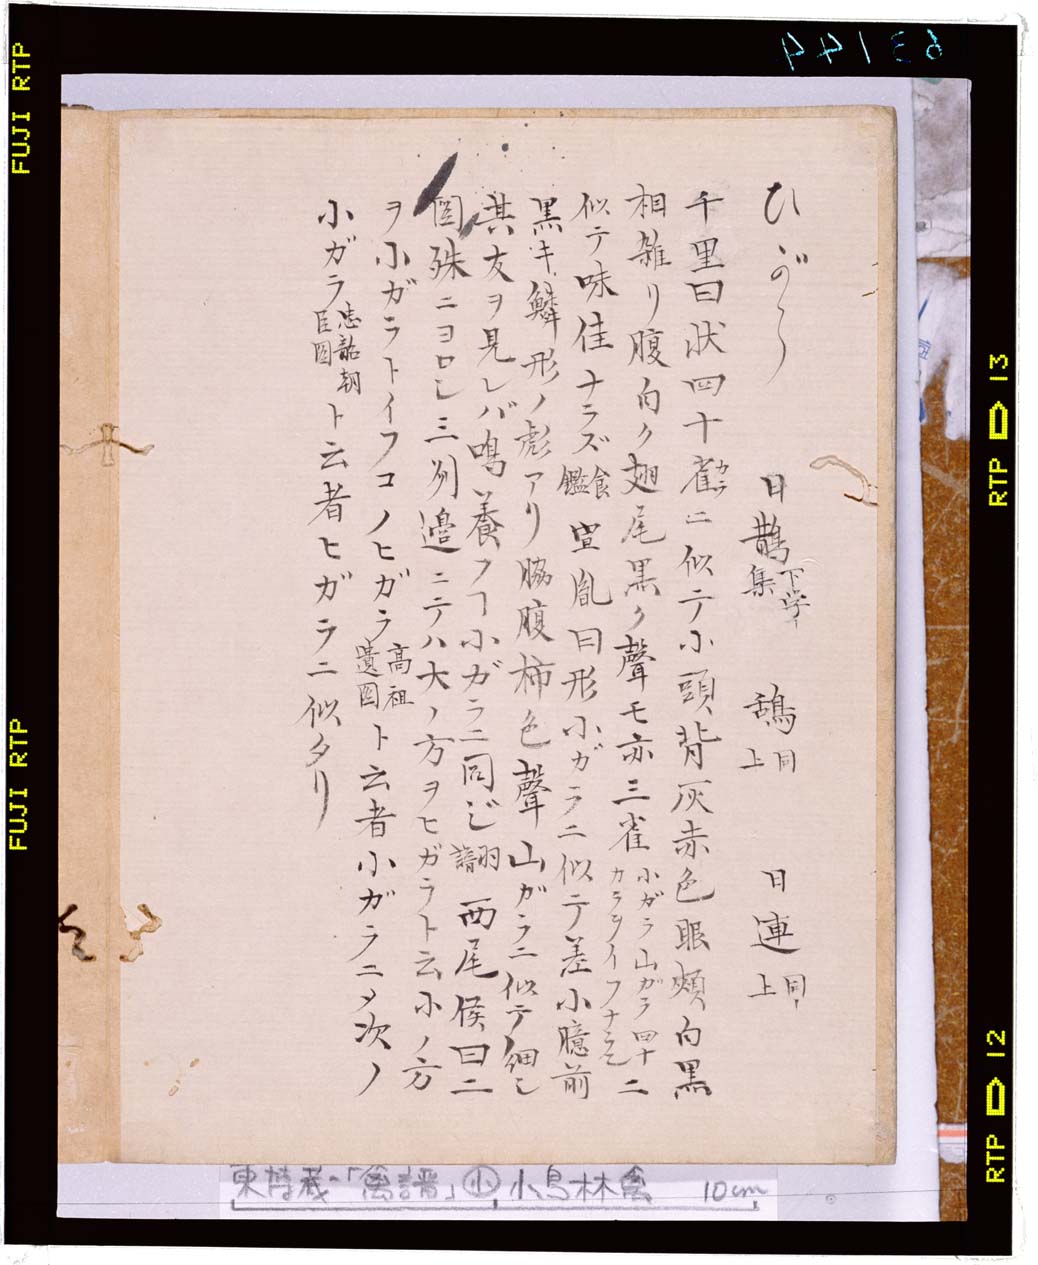 ひゞがら
日鵲 下学集 鴰 同上 日連 同上
千里曰状四十雀カラニ似テ小頭背灰赤色眼頰白黒
相雑リ腹白ク翅尾黒ク聲モ亦三雀 小ガラ山ガラ四十カラヲイフナラン ニ
似テ味佳ナラズ 食鑑 宣胤曰形小ガラニ似テ差小臆前
黒キ鱗形ノ彪アリ脇腹柿色聲山ガラニ似テ細し
其友ヲ見レバ鳴養フヿ小ガラニ同じ 羽譜 西尾侯曰二
圖殊ニヨロし三州邊ニテハ大ノ方ヲヒガラト云小ノ方
ヲ小ガラトイフコノヒガラ 高祖遺圖 ト云者小ガラニ〆次ノ
小ガラ 忠韶朝臣圖 ト云者ヒガラニ似タリ
東博蔵「禽譜」小 小鳥林禽 10cm
63144
FUJI RTP
FUJI RTP
RTP 13
RTP 12